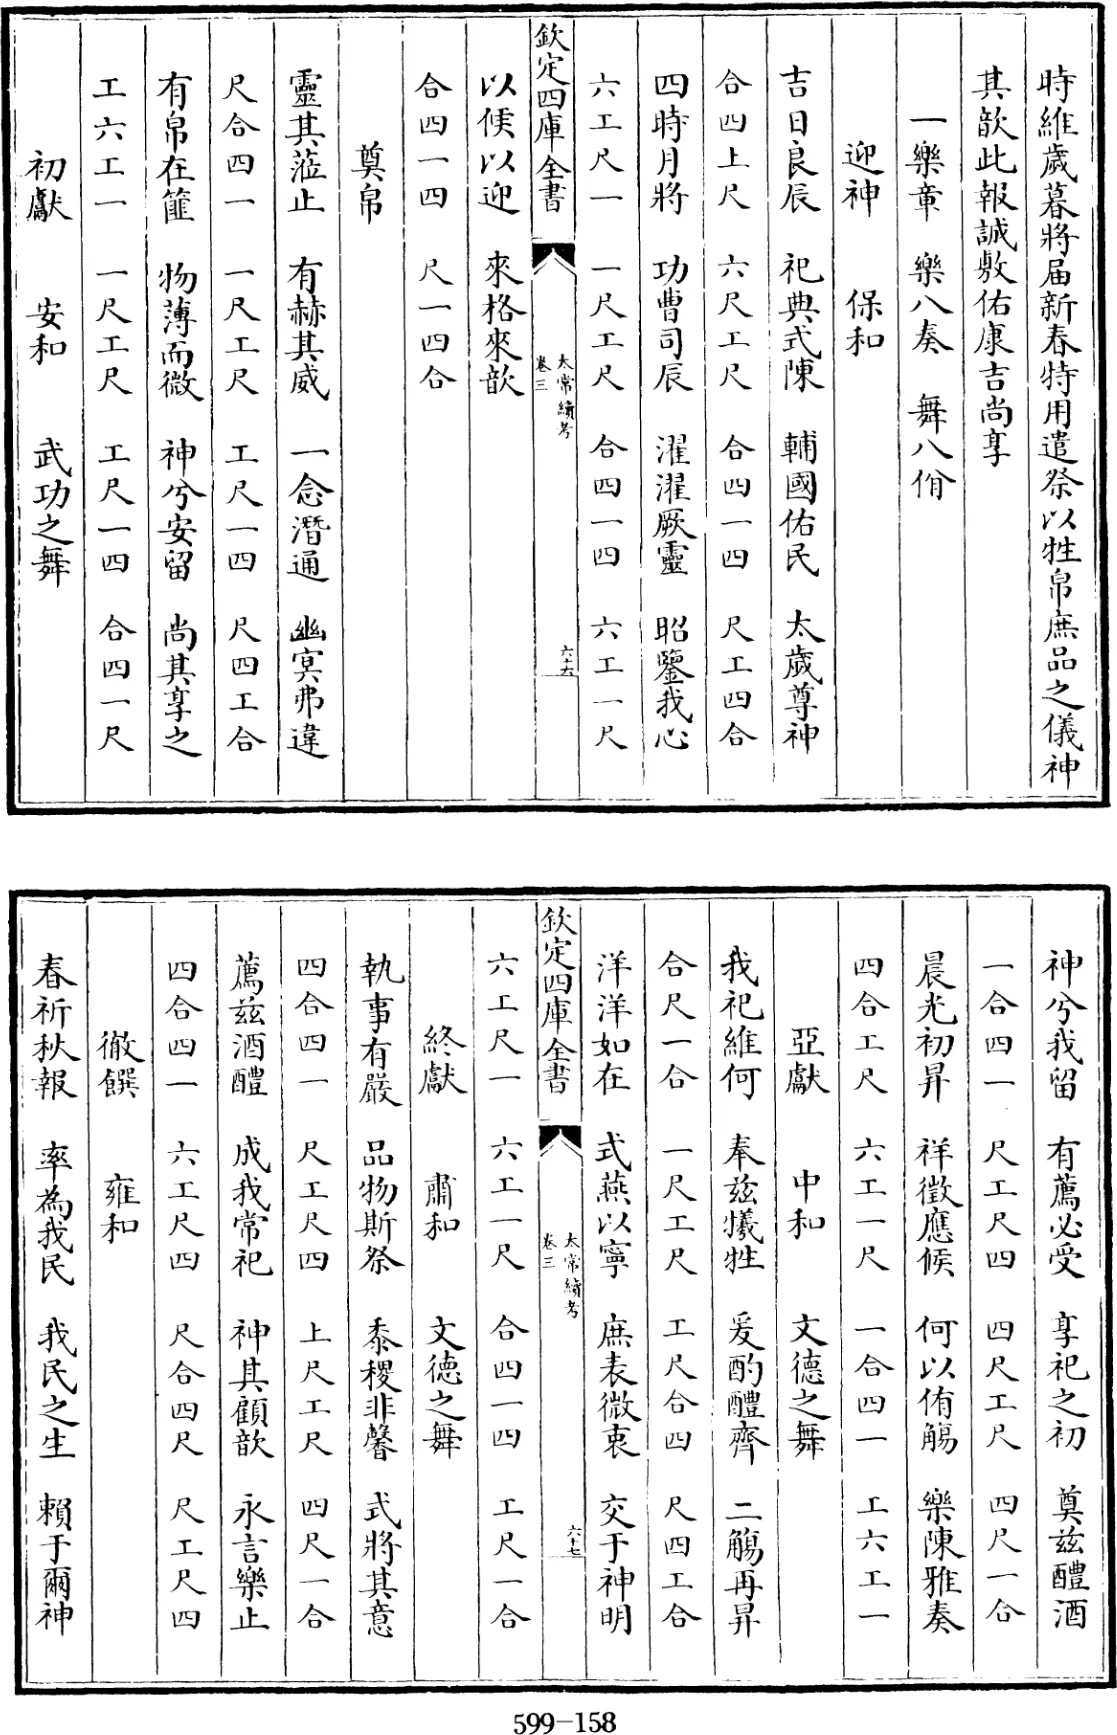 時維歲暮將届新春特用遣祭以牲帛庶品之儀神
其歆此報誠敷佑康吉尚享
一樂章 樂八奏 舞八佾
迎神 保和
吉日良辰 祀典式陳 輔國佑民 太歲尊神
合四上尺 六尺工尺 合四一四 尺工四合
四時月將 功曹司辰 濯濯厥靈 昭鑒我心
六工尺一 一尺工尺 合四一四 六工一尺
欽定四庫全書 太常續考 卷三 六十六
以俟以迎 來格來歆
合四一四 尺一四合
奠帛
靈其蒞止 有赫其威 一念潛通 幽冥弗違
尺合四一 一尺工尺 工尺一四 尺四工合
有帛在篚 物薄而微 神兮安留 尚其享之
工六工一 一尺工尺 工尺一四 合四一尺
初獻 安和 武功之舞
神兮我留 有薦必受 享祀之初 奠兹醴酒
一合四一 尺工尺四 四尺工尺 四尺一合
晨光初昇 祥徵應候 何以侑觴 樂陳雅奏
四合工尺 六工一尺 一合四一 工六工一
亞獻 中和 文德之舞
我祀維何 奉兹犧牲 爰酌醴齊 二觴再昇
合尺一合 一尺工尺 工尺合四 尺四工合
洋洋如在 式燕以寧 庶表微衷 交于神明
欽定四庫全書 太常續考 卷三 六十七
六工尺一 六工一尺 合四一四 工尺一合
終獻 肅和 文德之舞
執事有嚴 品物斯祭 黍稷非馨 式將其意
四合四一 尺工尺四 上尺工尺 四尺一合
薦兹酒醴 成我常祀 神其顧歆 永言樂止
四合四一 六工尺四 尺合四尺 尺工尺四
徹饌 雍和
春祈秋報 率為我民 我民之生 賴于爾神
599-158